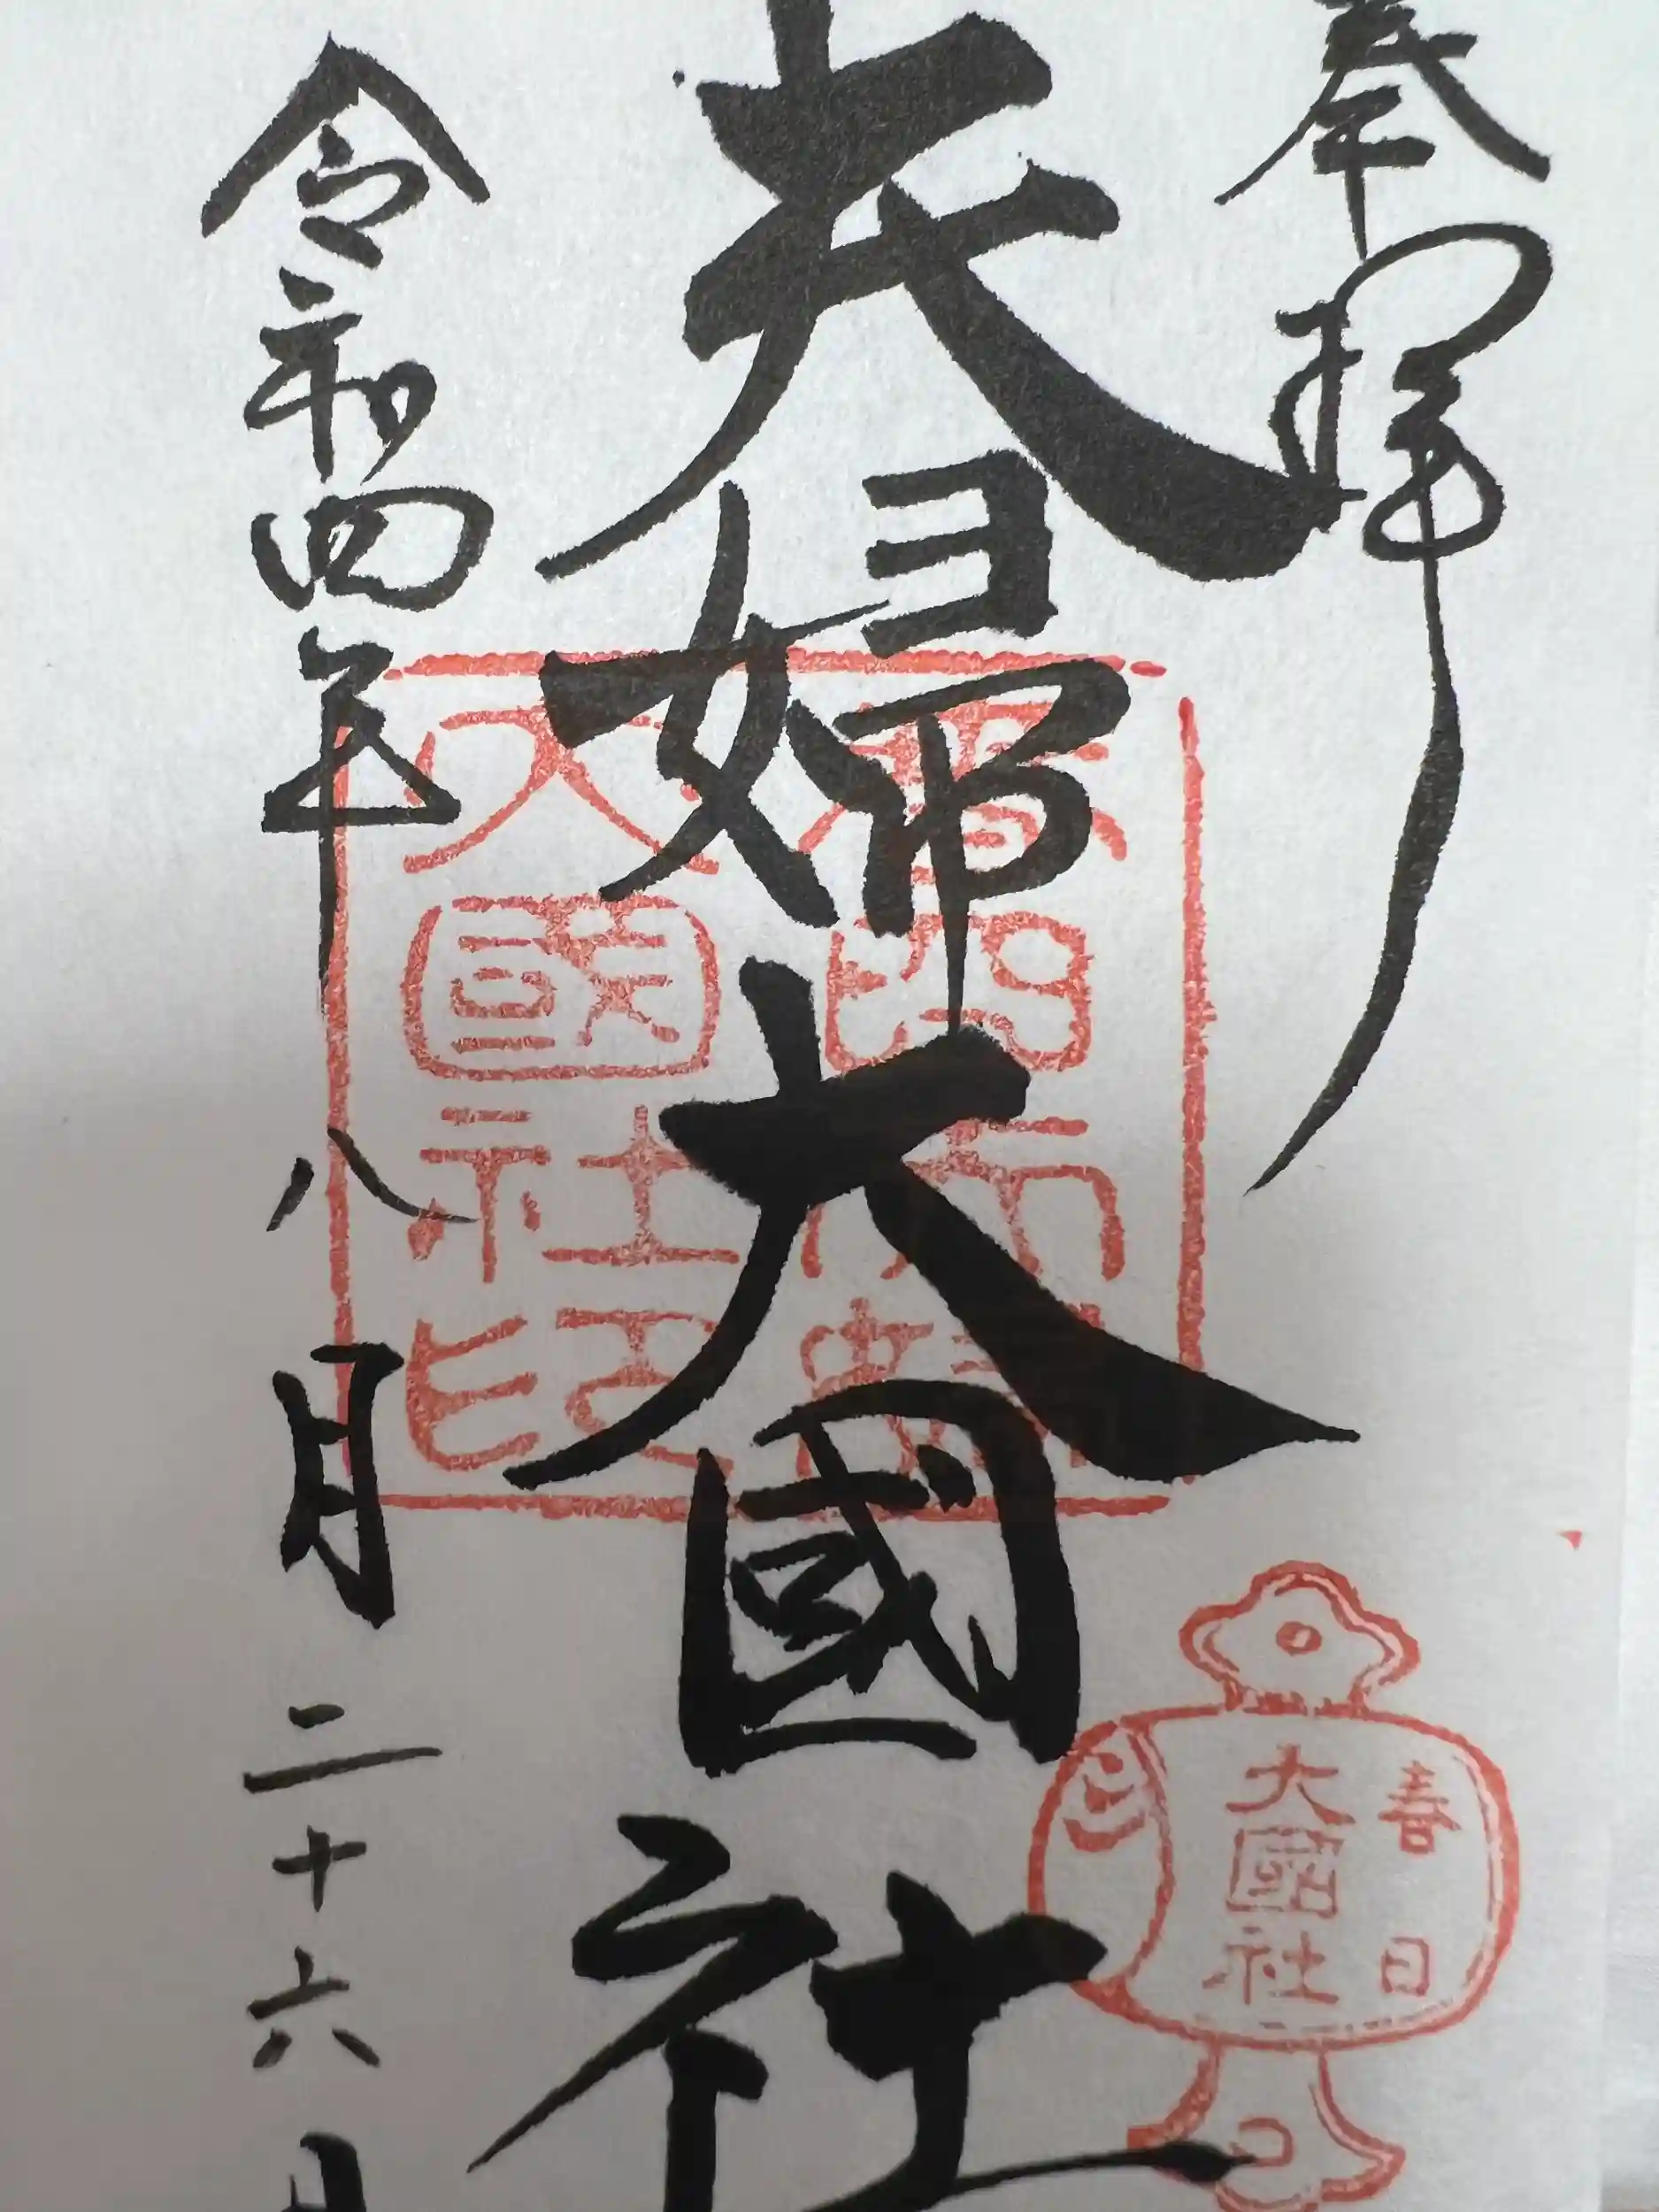 奉拝
夫婦大國社
令和四年八月二十六日
大國社印
春日
大國社